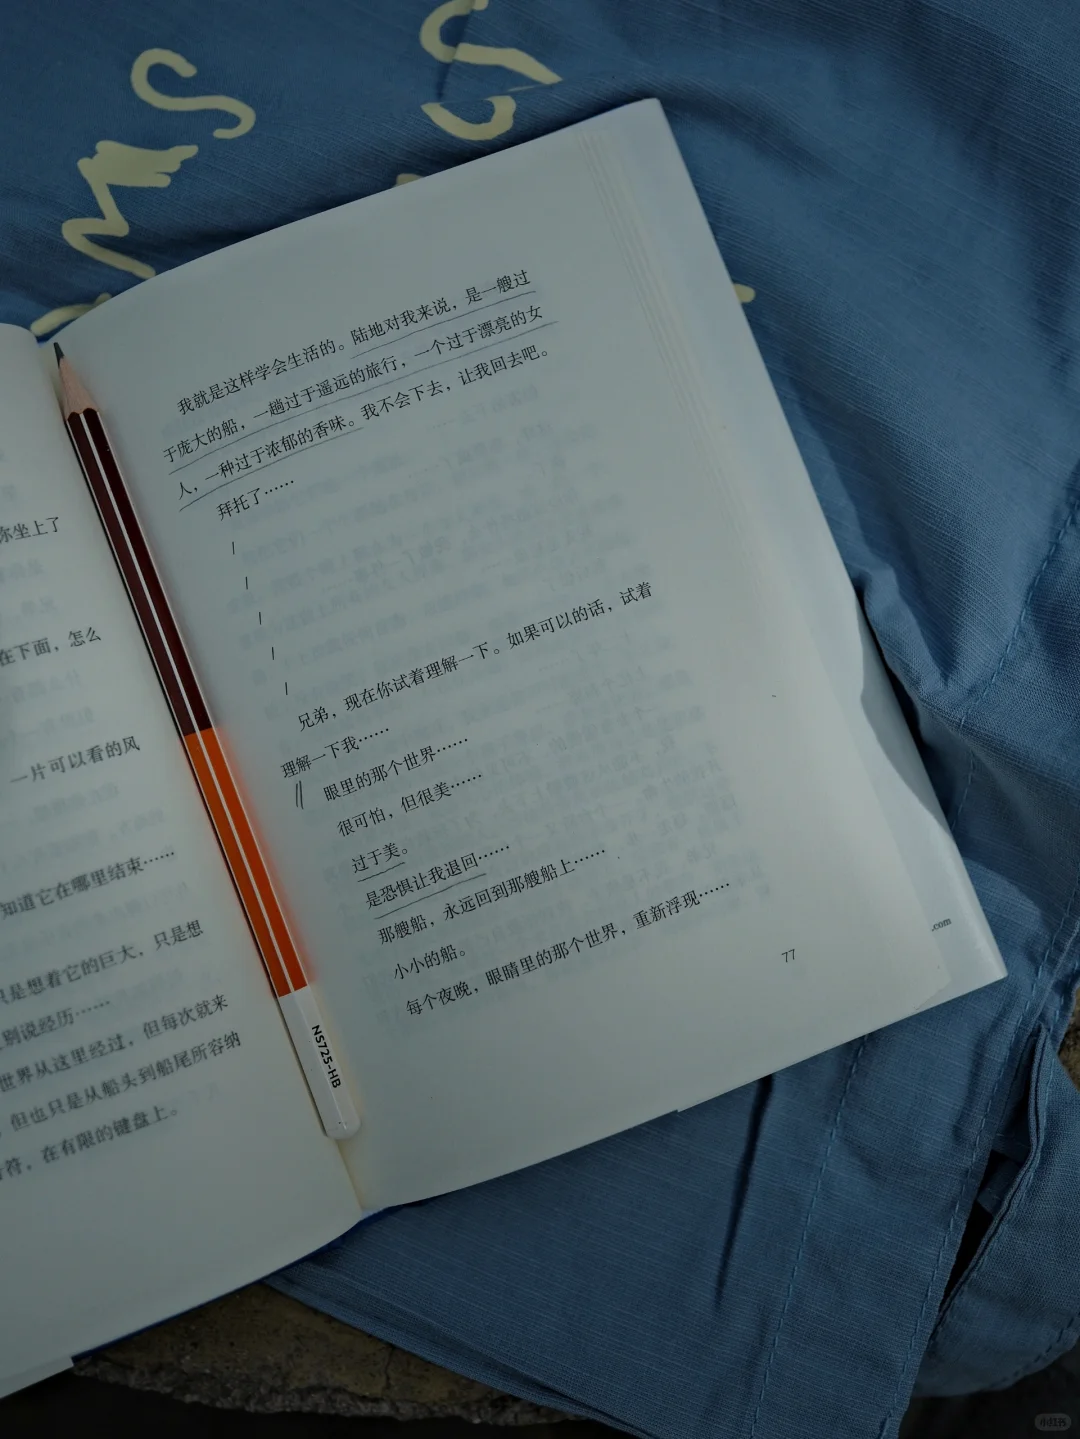 你坐上了
在下面，怎么
一片可以看的风
知道它在哪里结束……
只是想着它的巨大，只是想
别说经历……
世界从这里经过，但每次就来
，但也只是从船头到船尾所容纳
符，在有限的键盘上。
我就是这样学会生活的。陆地对我来说，是一艘过
于庞大的船，一趟过于遥远的旅行，一个过于漂亮的女
人，一种过于浓郁的香味。我不会下去，让我回去吧。
拜托了……
/
/
/
/
/
兄弟，现在你试着理解一下。如果可以的话，试着
理解一下我……
眼里的那个世界……
很可怕，但很美……
过于美。
是恐惧让我退回……
那艘船，永远回到那艘船上……
小小的船。
每个夜晚，眼睛里的那个世界，重新浮现……
77
.com
NS725-HB
小红书